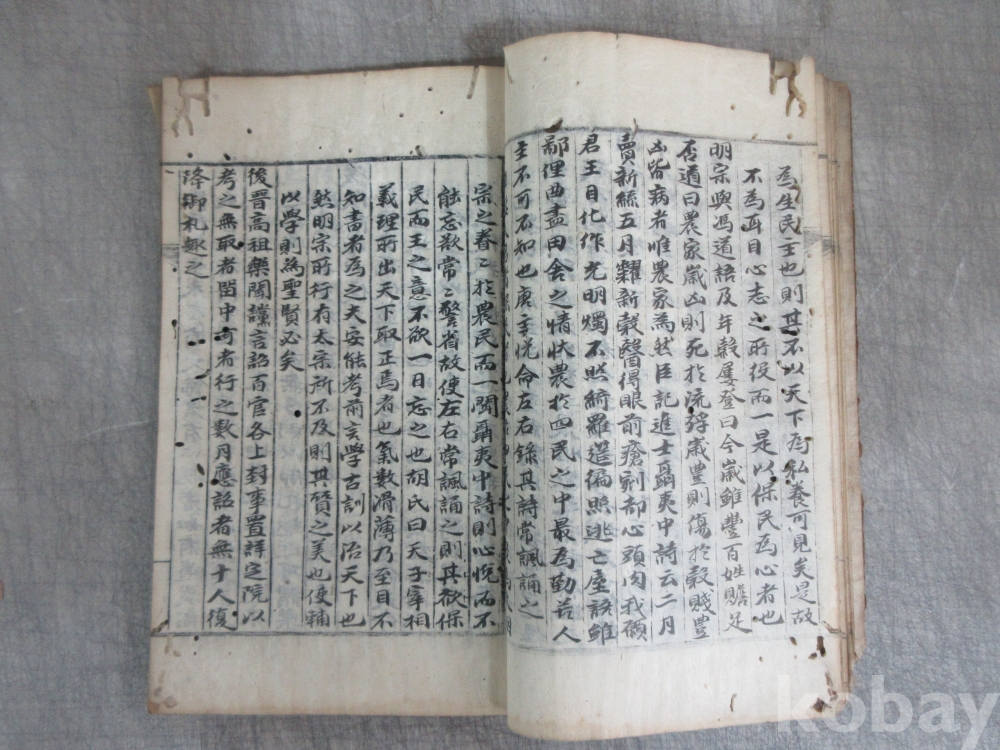 為生民主也則其不以天下為私養可見矣是故
不為耳目心志之所役而一是以保民為心者也
明宗與馮道語及年穀屢登曰今歲雖豐百姓贍足
否道曰農家歲凶則死於流殍歲豐則傷於穀賤豐
凶皆病者唯農家為然臣記進士聶夷中詩云二月
賣新絲五月糶新穀醫得眼前瘡剜却心頭肉我願
君王目化作光明燭不照綺羅筵徧照逃亡屋該雖
鄙俚曲盡田舍之情狀農於四民之中最為勤苦人
主不可不知也唐主悅命左右錄其詩常諷誦之
宗之眷〻於農民而一聞聶夷中詩則心悅而不
能忘歎常〻警省故使左右常諷誦之則其欲保
民而王之意不欲一日忘之也胡氏曰天子宰相
義理所出天下取正焉者也氣數滑薄乃至目不
知書者為之夫安能考前言學古訓以治天下也
然明宗所行有太宗所不及則其質之美也使輔
以學則為聖賢必矣
後晉高祖樂聞讜言詔百官各上封事置詳定院以
考之無取者留中可者行之數月應詔者無十人復
降御札趣之
kobay